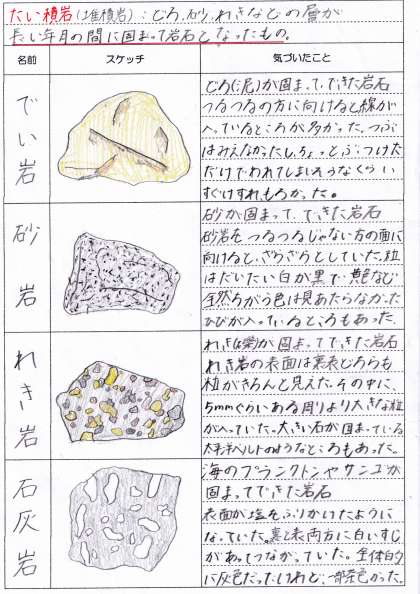 たい積岩(堆積岩):どろ、砂、れきなどの層が
長い年月の間に固まって岩石となったもの。
名前 スケッチ 気づいたこと
でい岩
どろ(泥)が固まってできた岩石
つるつるの方に向けると線が
入っているところが多かった。つぶ
はみえなかったし、ちょっとぶつけた
だけでわれてしまいそうなくらい
すぐけずれ、もろかった。
砂岩
砂が固まってできた岩石
砂岩をつるつるじゃない方の面に
向けると、ざらざらとしていた。粒
はだいたい白か黒で
全然ちがう色は見あたらなかった
ひびが入っているところもあった。
れき岩
れき(礫)が固まってできた岩石
れき岩の表面は裏表どちらも
粒がきちんと見えた。その中に、
5mmぐらいある周りより大きな粒
が入っていた。大きい石が固まっている
太平洋ベルトのようなところもあった。
石灰岩
海のプランクトンやサンゴが
固まってできた岩石
表面が塩をふりかけたように
なっていた。裏と表両方に白いすじ
があってつながっていた。全体的
に灰色だったけれど、一部茶色かった。